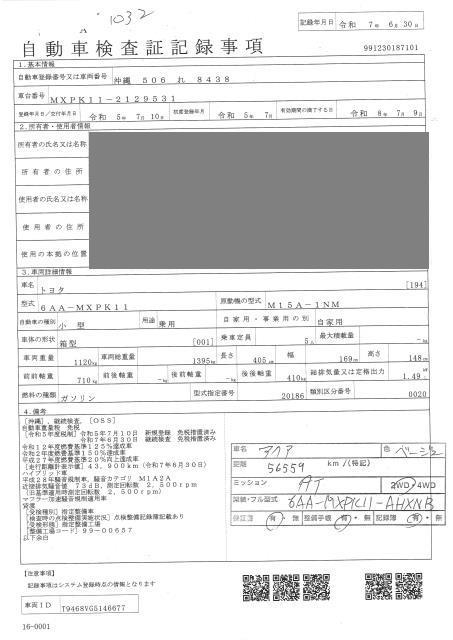 1032
A
記録年月日 令和 7年 6月30日
自動車検査証記録事項
991230187101
1.基本情報
自動車登録番号又は車両番号 沖縄 506 れ 8438
車台番号 MXPK11-2129531
登録年月日/交付年月日 令和 5年 7月10日 初度登録年月 令和 5年 7月 有効期間の満了する日 令和 8年 7月 9日
2.所有者・使用者情報
所有者の氏名又は名称
所有者の住所
使用者の氏名又は名称
使用者の住所
使用の本拠の位置
3.車両詳細情報
車名 トヨタ [194]
型式 6AA-MXPK11 原動機の型式 M15A-1NM
自動車の種別 小型 用途 乗用 自家用・事業用の別 自家用
車体の形状 箱型 [001] 乗車定員 5人 最大積載量 -kg
車両重量 1120kg 車両総重量 1395kg 長さ 405cm 幅 169cm 高さ 148cm
前前軸重 710kg 前後軸重 -kg 後前軸重 -kg 後後軸重 410kg 総排気量又は定格出力 1.49
燃料の種類 ガソリン 型式指定番号 20186 類別区分番号 0020
4.備考
[沖縄],継続検査,[OSS]
自動車重量税 免税
[令和5年度税制]令和5年7月10日 新規登録 免税措置済み
令和7年6月30日 継続検査 免税措置済み
令和12年度燃費基準125%達成車
令和2年度燃費基準150%達成車
平成27年度燃費基準20%向上達成車
[走行距離計表示値]43,900km(令和7年6月30日)
ハイブリッド車
平成28年騒音規制車,騒音カテゴリ M1A2A
近接排気騒音値 73dB,測定回転数 2,500rpm
(旧基準適用時測定回転数 2,500rpm)
マフラー加速騒音規制適用車
[受検種別]指定整備車
[検査時の点検整備実施状況]点検整備記録簿記載あり
[受検形態]指定整備工場
[整備工場コード]99-00657
以下余白
車名 アクア 色 ベージュ
距離 56559 km/(特記)
ミッション AT 2WD・4WD
型類・フル型式 6AA-MXPK11-AHXNB
保証書 有・無 整備手帳 有・無 記録簿 有・無
【注意事項】
記録事項はシステム登録時点の情報となります
車両ID T9468VG5146677
16-0001